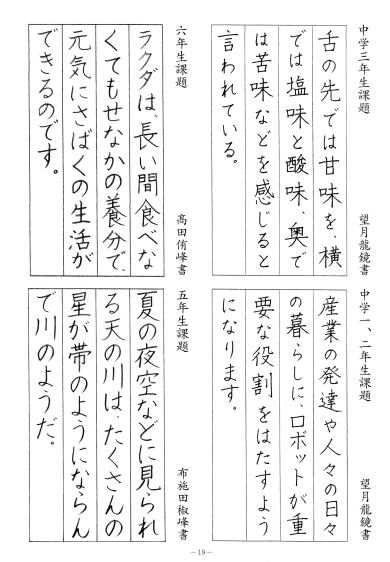 中学三年生課題
望月龍鏡書
舌の先では甘味を、横
では塩味と酸味、奥で
は苦味などを感じると
言われている。
六年生課題
高田侑峰書
ラクダは、長い間食べな
くてもせなかの養分で、
元気にさばくの生活が
できるのです。
中学一、二年生課題
望月龍鏡書
産業の発達や人々の日々
の暮らしに、ロボットが重
要な役割をはたすよう
になります。
五年生課題
布施田椒峰書
夏の夜空などに見られ
る天の川は、たくさんの
星が帯のようにならん
で川のようだ。
—19—